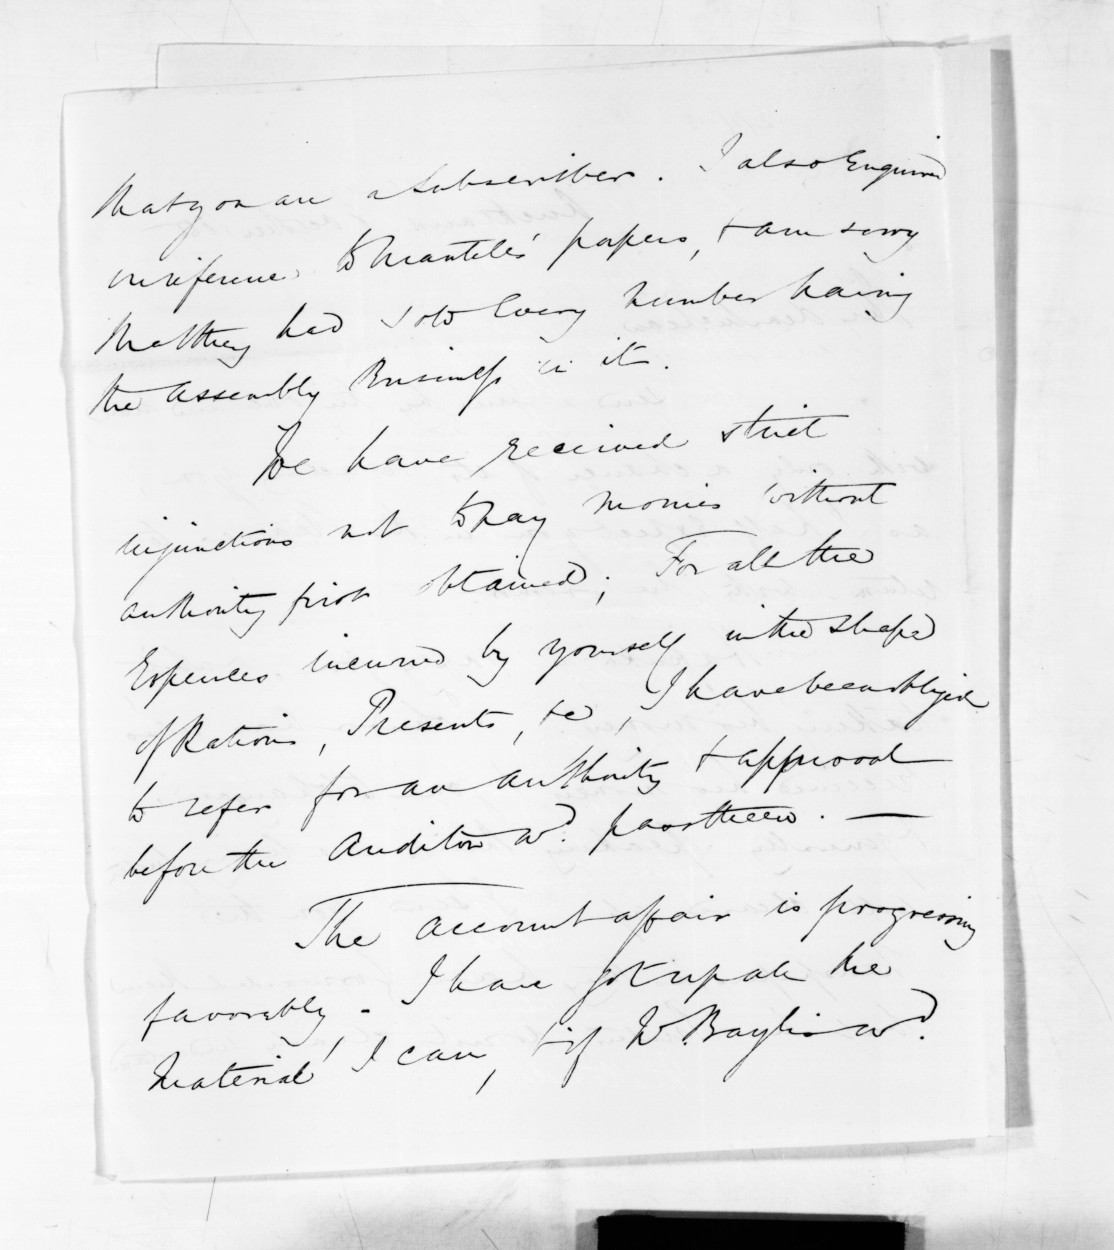 that you are a Subscriber. I also Enquired
in reference to Mantell's papers, & am sorry
that they had sold Every number having
the Assembly Business in it.
We have received strict
injunctions not to pay monies without
authority first obtained; For all the
Expences incurred by yourself in the shape
of Rations, Presents, &c, I have been obliged
to refer for an authority & approval
before the Auditor wd. pass them. —
The account affair is progressing
favorably. I have got up all the
Material I can, & if W. Baylis wd.